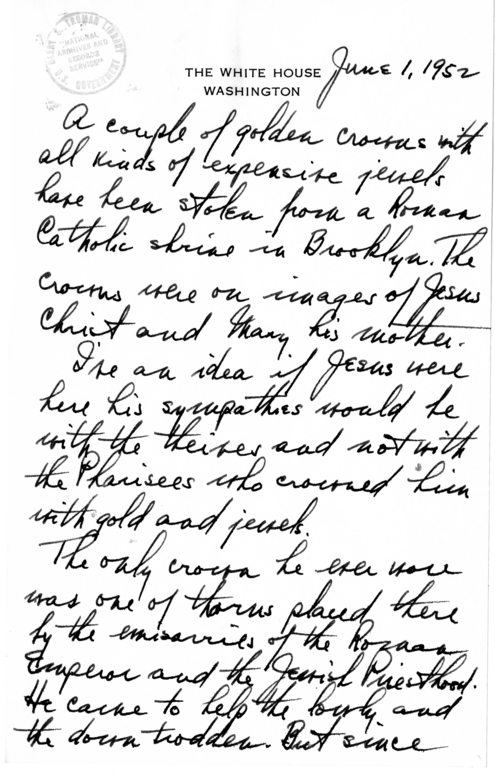 HARRY S. TRUMAN LIBRARY
"NATIONAL
ARCHIVES AND
RECORDS
SERVICE"
U.S. GOVERNMENT
THE WHITE HOUSE
WASHINGTON
June 1, 1952
A couple of golden crowns with
all kinds of expensive jewels
have been stolen from a Roman
Catholic shrine in Brooklyn. The
crowns were on images of Jesus
Christ and Mary his mother.
I've an idea if Jesus were
here his sympathies would be
with the theives and not with
the Pharisees who crowned him
with gold and jewels.
The only crown he ever wore
was one of thorns placed there
by the emisarries of the Roman
Emperor and the Jewish Priesthood.
He came to help the lowly and
the down trodden. But since